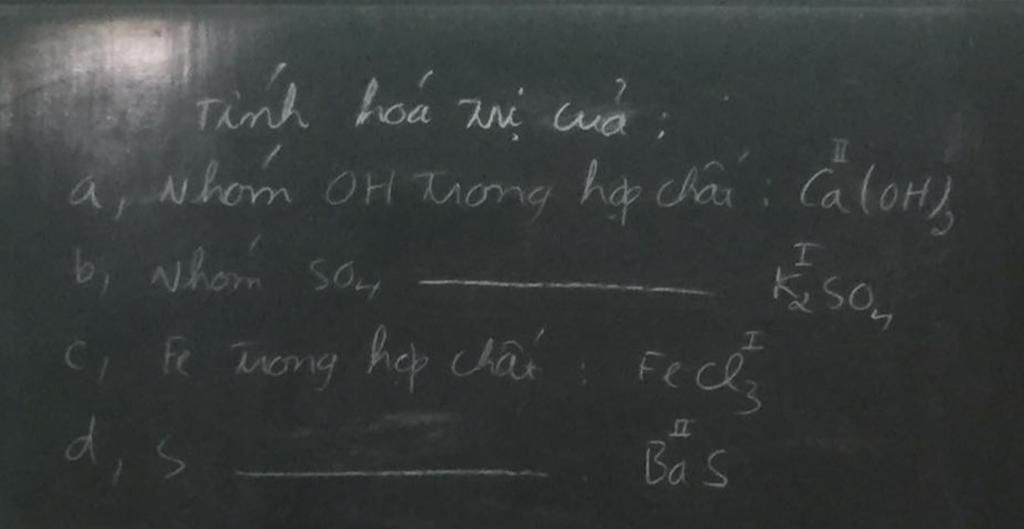 Tính hoá trị của :
a, Nhóm OH trong hợp chất : Ca(OH)₂ II
b, Nhóm SO₄ ——— K₂SO₄ I
c, Fe trong hợp chất : FeCl₃ I
d, S ——— BaS II